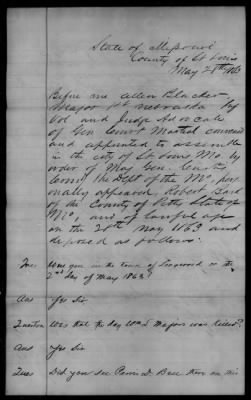 State of Missouri
County of St Louis
May 28th 1863
Before me Allen Blacker
Major 1st Nebraska
Vol and Judge Advocate
of Gen Court Martial convened
and appointed to assemble
in the city of St Louis Mo. by
order of Maj Gen. Curtis
Comg the Dept of the Mo. per
sonally appeared, Robert
of the County of Petty State of
Mo, and of lawful age
on the 28th May 1863 and
deposed as follows:
Ques Were you in the town of on the
2nd day of May 1863?
Ans Yes Sir
Question Was that the day Wm Majors was killed?
Ans Yes Sir
Ques Did you see there on this